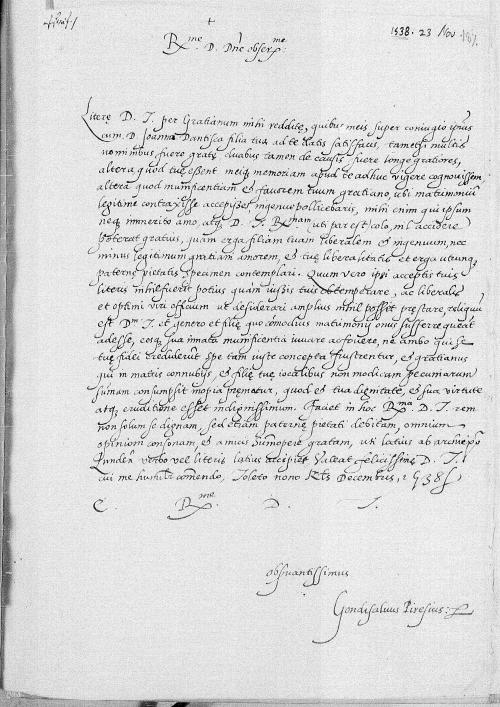 1538. 23 Nov
+
R.me D. Dne obser.me
Litere D. T. per Gratianum mihi reddite, quibus meis super coniugio ipsius
cum D. Joanna Dantisca filia tua ad te datis satisfacis, tametsi multis
nominibus fuere grate duabus tamen de causis fuere longe gratiores,
altera quod tue essent meique memoriam apud te adhuc vigere cognovissem,
altera quod munificentiam et favorem tuum gratiano, ubi matrimonium
legitime contraxisse accepisses, ingenue pollicebaris, mihi enim qui ipsum
neque immerito amo, atque D. T. R.mam uti par est colo, nil accidere
poterat gratius, quam erga filiam tuam liberalem et ingenuum, nec
minus legitimum gratiani amorem, et tue liberalitatis et erga utrunque
paterne pietatis specimen contemplari. Quum vero ipsi acceptis tuis
literis nihil fuerit potius quam iussis tuis obtemperare, ac liberalis
et optimi viri officium ut desiderari amplius nihil possit prestare, reliquum
est D.ni T. et genero et filie quo comodius matrimonii onus sufferre queat
adesse, eosque sua innata munificentia iuvare ac fovere, ne ambo qui se
tue fidei crediderunt spe tam iuste concepta frustrentur, et gratianus
qui in mutuis connubiis, et filie tue iocalibus non modicam pecuniarum
summam consumpsit inopia prematur, quod et tua dignitate, et sua virtute
atque eruditione esset indignissimum. Faciet in hoc R.ma D. T. rem
non solum se dignam, sed etiam paterne pietati debitam, omnium
opinioni consonam, et amicis summopere gratam, uti latius ab
verbo vel literis latius accipiet. Valeat felicissime D. T.
cui me humiliter comendo, Toleto nono Kls Decembris, 1538
E. R.me D. T.
observantissimus
Gondisalvus Piresius